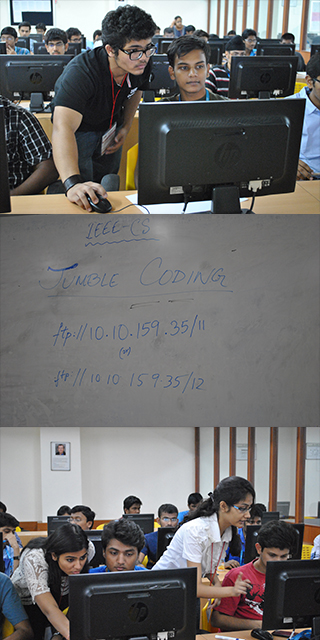 IEEE-CS
JUMBLE CODING
ftp://10.10.159.35/11
(or)
ftp://10 10 159.35/12
hp